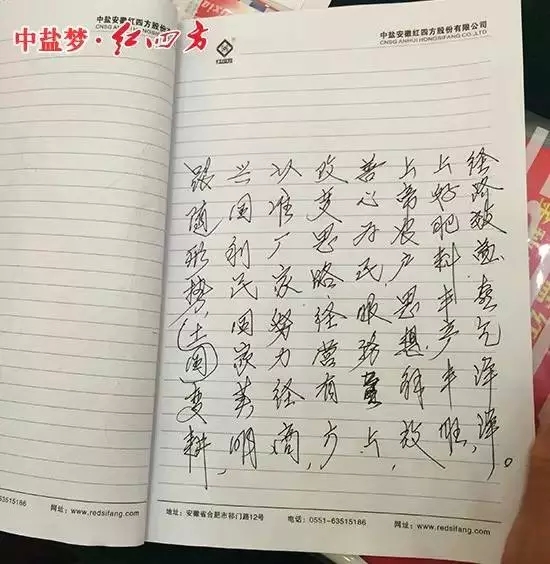 中盐梦·红四方
中盐安徽红四方股份有限公司
CNSG ANHUI HONGSIFANG CO.,LTD
红四方
跟随形势,(土国)变耕,
兴国利民国家美明,
以准厂家努力经商,
改变思路经营有方,
善心为民,服务上,
上帝农户思想,解放,
上好肥料丰产丰旺,
经路致喜气洋洋。
63515186 网址:www.redsifang.com
地址:安徽省合肥市祁门路12号 电话:0551-63515186 网址:www.redsifang.com